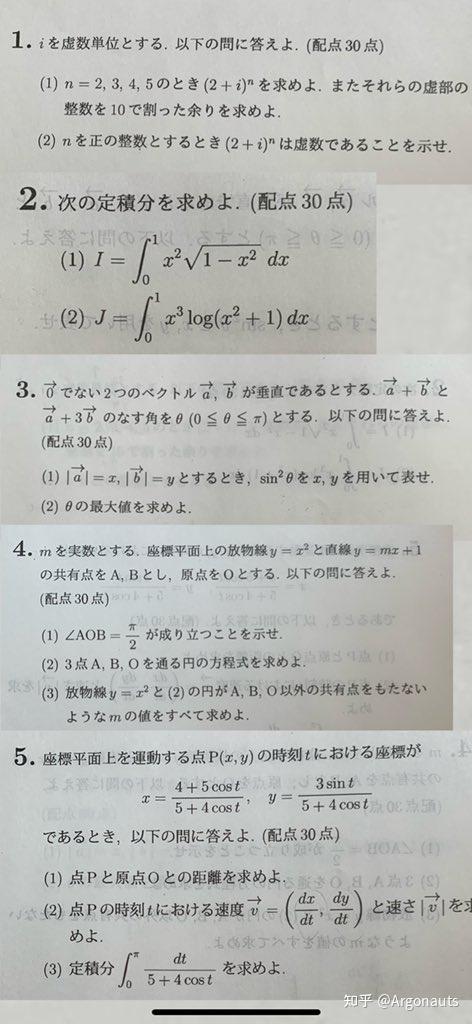 1. iを虚数単位とする. 以下の問に答えよ. (配点30点)
(1) n = 2, 3, 4, 5 のとき (2 + i)ⁿ を求めよ. またそれらの虚部の
整数を 10 で割った余りを求めよ.
(2) n を正の整数とするとき (2 + i)ⁿ は虚数であることを示せ.
2. 次の定積分を求めよ. (配点30点)
(1) I = ∫₀¹ x²√(1 − x²) dx
(2) J = ∫₀¹ x³ log(x² + 1) dx
3. 0⃗ でない2つのベクトル a⃗, b⃗ が垂直であるとする. a⃗ + b⃗ と
a⃗ + 3b⃗ のなす角を θ (0 ≦ θ ≦ π) とする. 以下の問に答えよ.
(配点30点)
(1) |a⃗| = x, |b⃗| = y とするとき, sin²θ を x, y を用いて表せ.
(2) θ の最大値を求めよ.
4. m を実数とする. 座標平面上の放物線 y = x² と直線 y = mx + 1
の共有点を A, B とし, 原点を O とする. 以下の問に答えよ.
(配点30点)
(1) ∠AOB = π/2 が成り立つことを示せ.
(2) 3点 A, B, O を通る円の方程式を求めよ.
(3) 放物線 y = x² と (2) の円が A, B, O 以外の共有点をもたない
ような m の値をすべて求めよ.
5. 座標平面上を運動する点 P(x, y) の時刻 t における座標が
x = (4 + 5 cos t)/(5 + 4 cos t), y = (3 sin t)/(5 + 4 cos t)
であるとき, 以下の問に答えよ. (配点30点)
(1) 点 P と原点 O との距離を求めよ.
(2) 点 P の時刻 t における速度 v⃗ = (dx/dt, dy/dt) と速さ |v⃗| を求
めよ.
(3) 定積分 ∫₀^π dt/(5 + 4 cos t) を求めよ.
知乎 @Argonauts